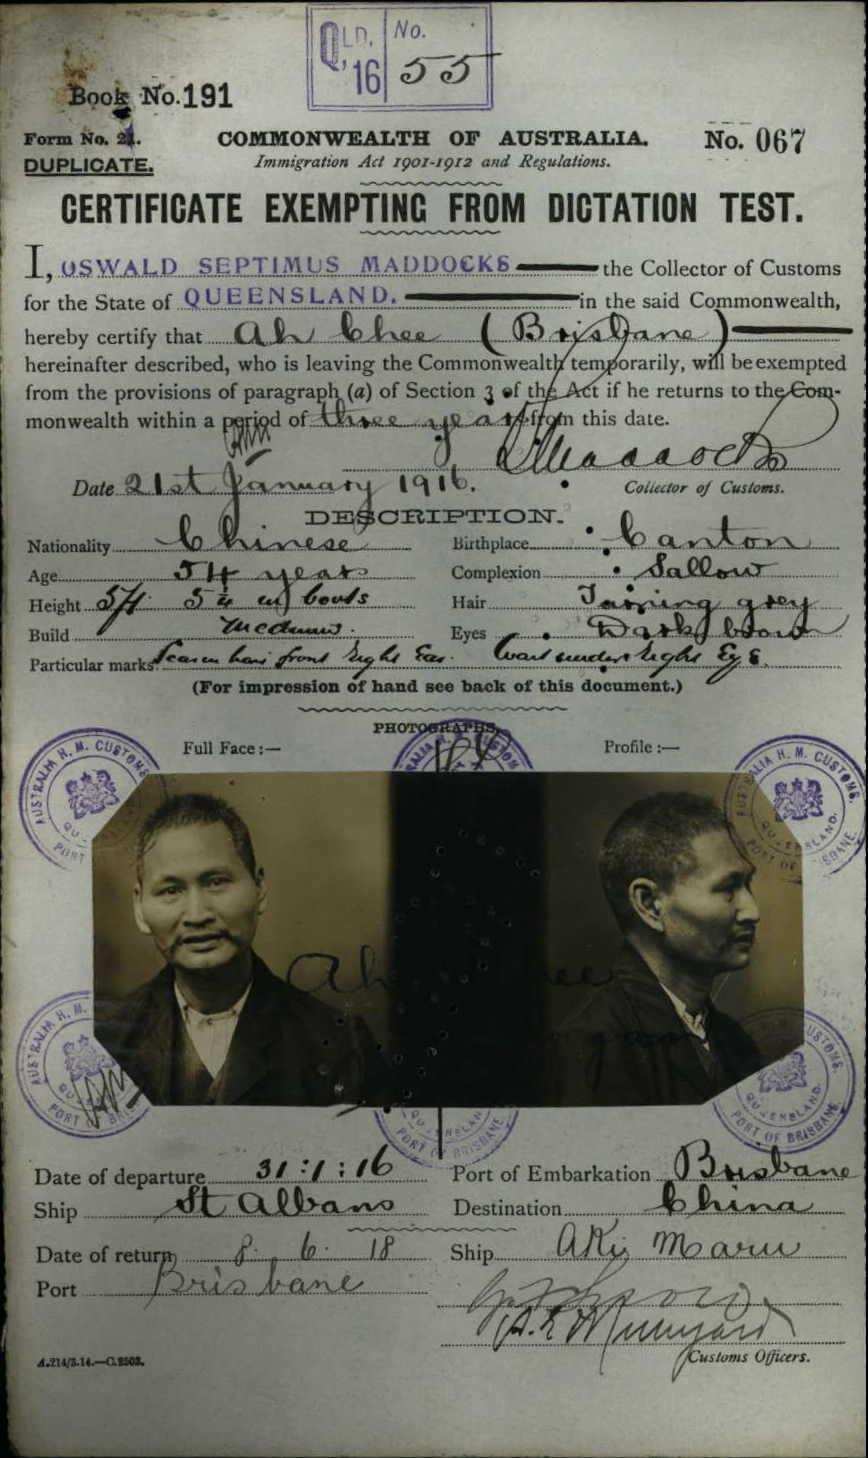 QLD. No.
'16 55
Book No. 191
Form No. 21. COMMONWEALTH OF AUSTRALIA. No. 067
DUPLICATE. Immigration Act 1901-1912 and Regulations.
CERTIFICATE EXEMPTING FROM DICTATION TEST.
I, OSWALD SEPTIMUS MADDOCKS the Collector of Customs
for the State of QUEENSLAND. in the said Commonwealth,
hereby certify that Ah Chee (Brisbane)
hereinafter described, who is leaving the Commonwealth temporarily, will be exempted
from the provisions of paragraph (a) of Section 3 of the Act if he returns to the Com-
monwealth within a period of three years from this date.
Maddocks
Date 21st January 1916. Collector of Customs.
DESCRIPTION.
Nationality Chinese Birthplace Canton
Age 54 years Complexion Sallow
Height 5ft 5¼ in boots Hair Turning grey
Build Medium. Eyes Dark brown
Particular marks Scar in hair front right Ear. Wart under right Eye.
(For impression of hand see back of this document.)
PHOTOGRAPHS.
Full Face:— Profile:—
AUSTRALIA H. M. CUSTOMS. QUEENSLAND. PORT OF BRISBANE
Ah Chee
Date of departure 31:1:16 Port of Embarkation Brisbane
Ship St Albans Destination China
Date of return 8. 6. 18 Ship Aki Maru
Port Brisbane
Customs Officers.
A.214/3.14.—C.2503.